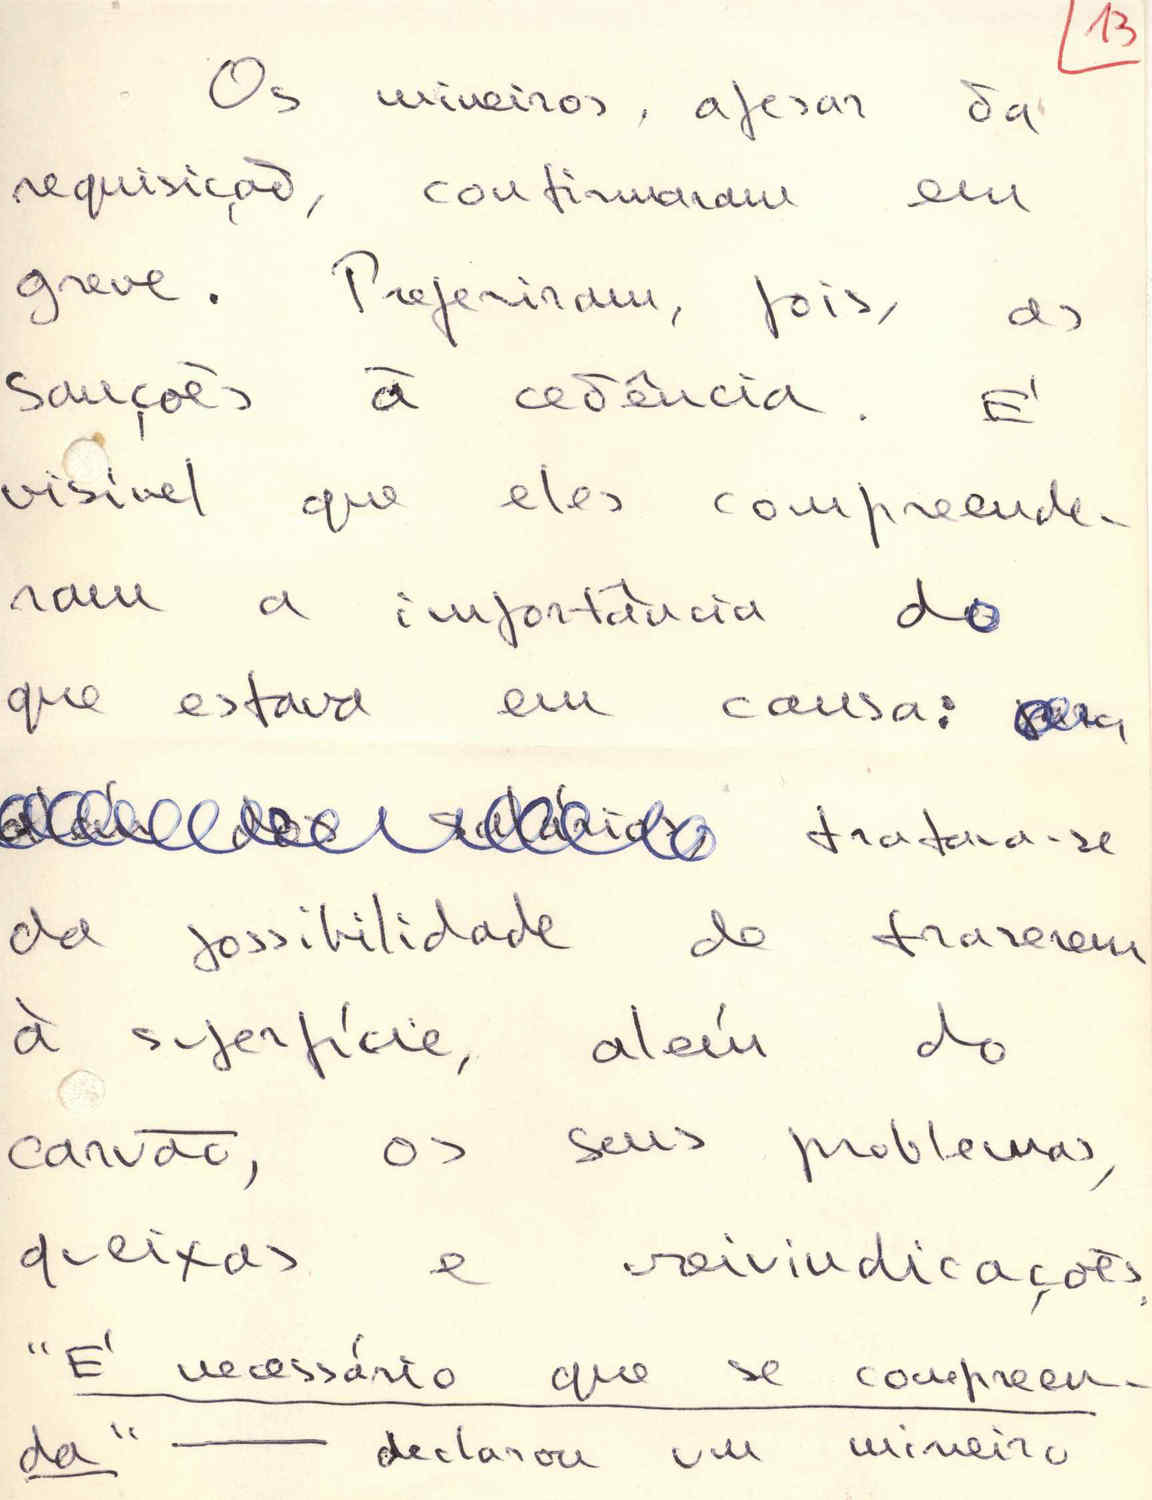 13
Os mineiros, apesar da
requisição, continuaram em
greve. Preferiram, pois, as
sanções à cedência. É
visível que eles compreende-
ram a importância do
que estava em causa: para
além dos salários, tratava-se
da possibilidade de trazerem
à superfície, além do
carvão, os seus problemas,
queixas e reivindicações.
"É necessário que se compreen-
da" — declarou um mineiro